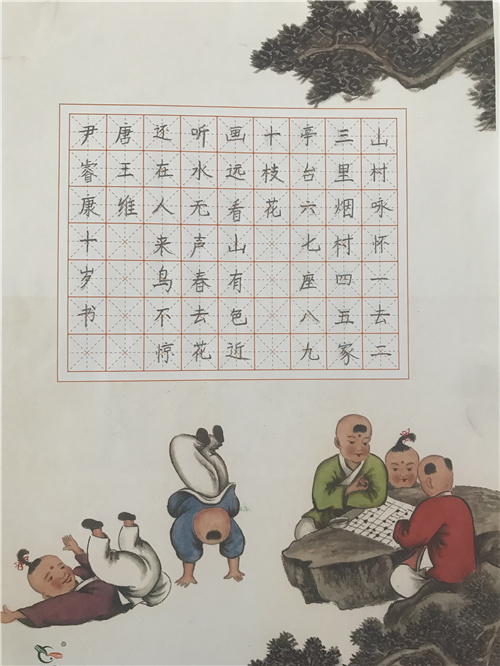 山村咏怀一去二
三里烟村四五家
亭台六七座八九
十枝花
画远看山有色近
听水无声春去花
还在人来鸟不惊
唐王维
尹睿康十岁书